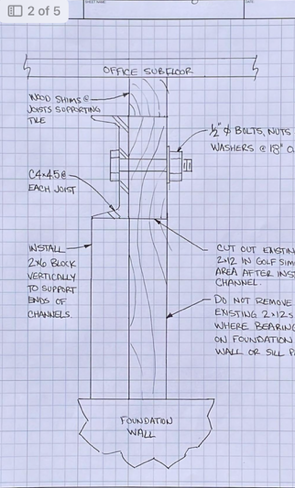 2 of 5
SHEET NAME
OFFICE SUBFLOOR
WOOD SHIMS @
JOISTS SUPPORTING
TILE
1/2" Ø BOLTS, NUTS
WASHERS @ 18" O.
C4x4.5 @
EACH JOIST
INSTALL
2x6 BLOCK
VERTICALLY
TO SUPPORT
ENDS OF
CHANNELS.
CUT OUT EXISTIN
2x12 IN GOLF SIM
AREA AFTER INST
CHANNEL.
DO NOT REMOVE
EXISTING 2x12s
WHERE BEARING
ON FOUNDATION
WALL OR SILL P
FOUNDATION
WALL